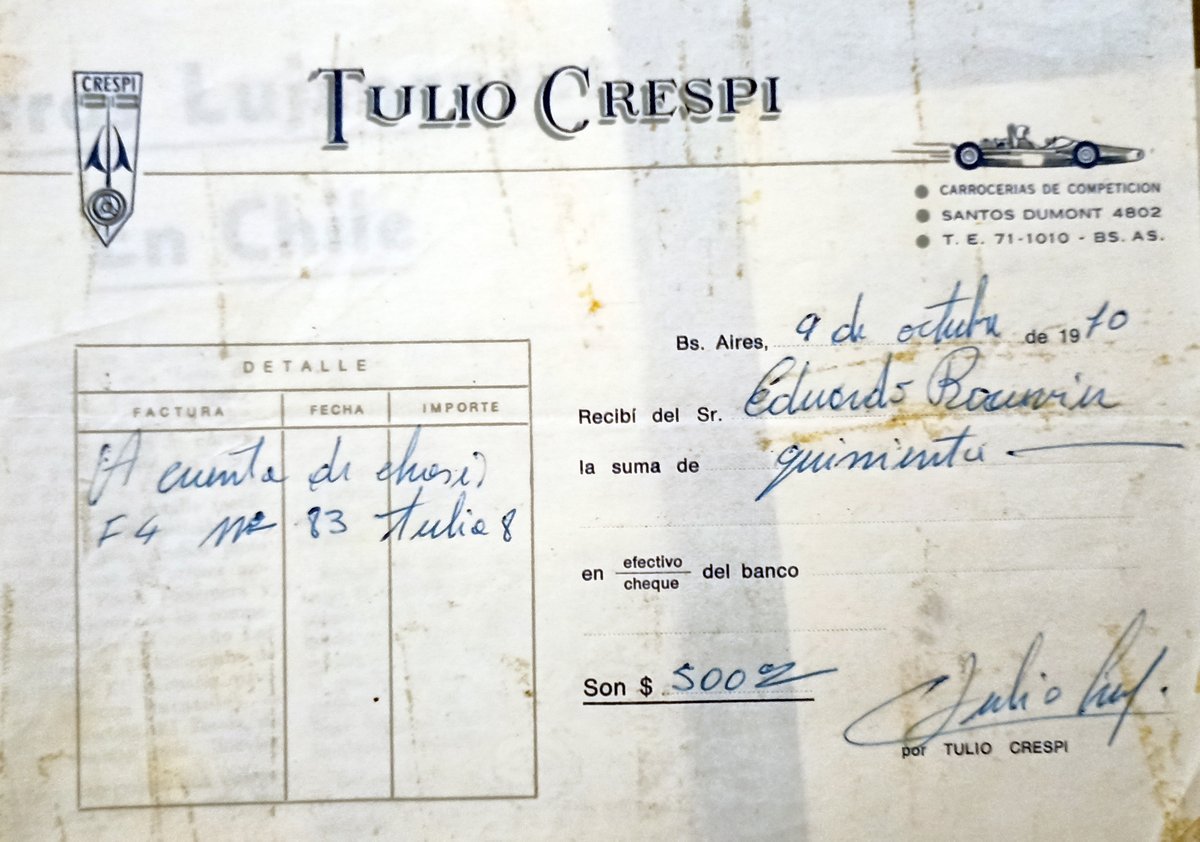 CRESPI
TULIO CRESPI
CARROCERIAS DE COMPETICION
SANTOS DUMONT 4802
T. E. 71-1010 - BS. AS.
En Chile
Bs. Aires, 9 de octubre de 1970
Recibí del Sr. Eduardo
la suma de quinientos
en efectivo/cheque del banco
Son $ 500
Tulio
por TULIO CRESPI
DETALLE
FACTURA FECHA IMPORTE
A cuenta de chasis
F4 Nº 83 Tulia 8